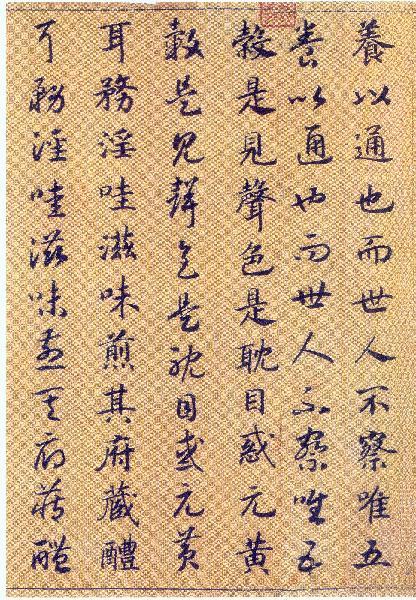 養以通也而世人不察唯五
養以通也而世人不察唯五
穀是見聲色是耽目惑元黄
穀是見聲色是耽目惑元黄
耳務淫哇滋味煎其府藏醴
耳務淫哇滋味煎其府藏醴